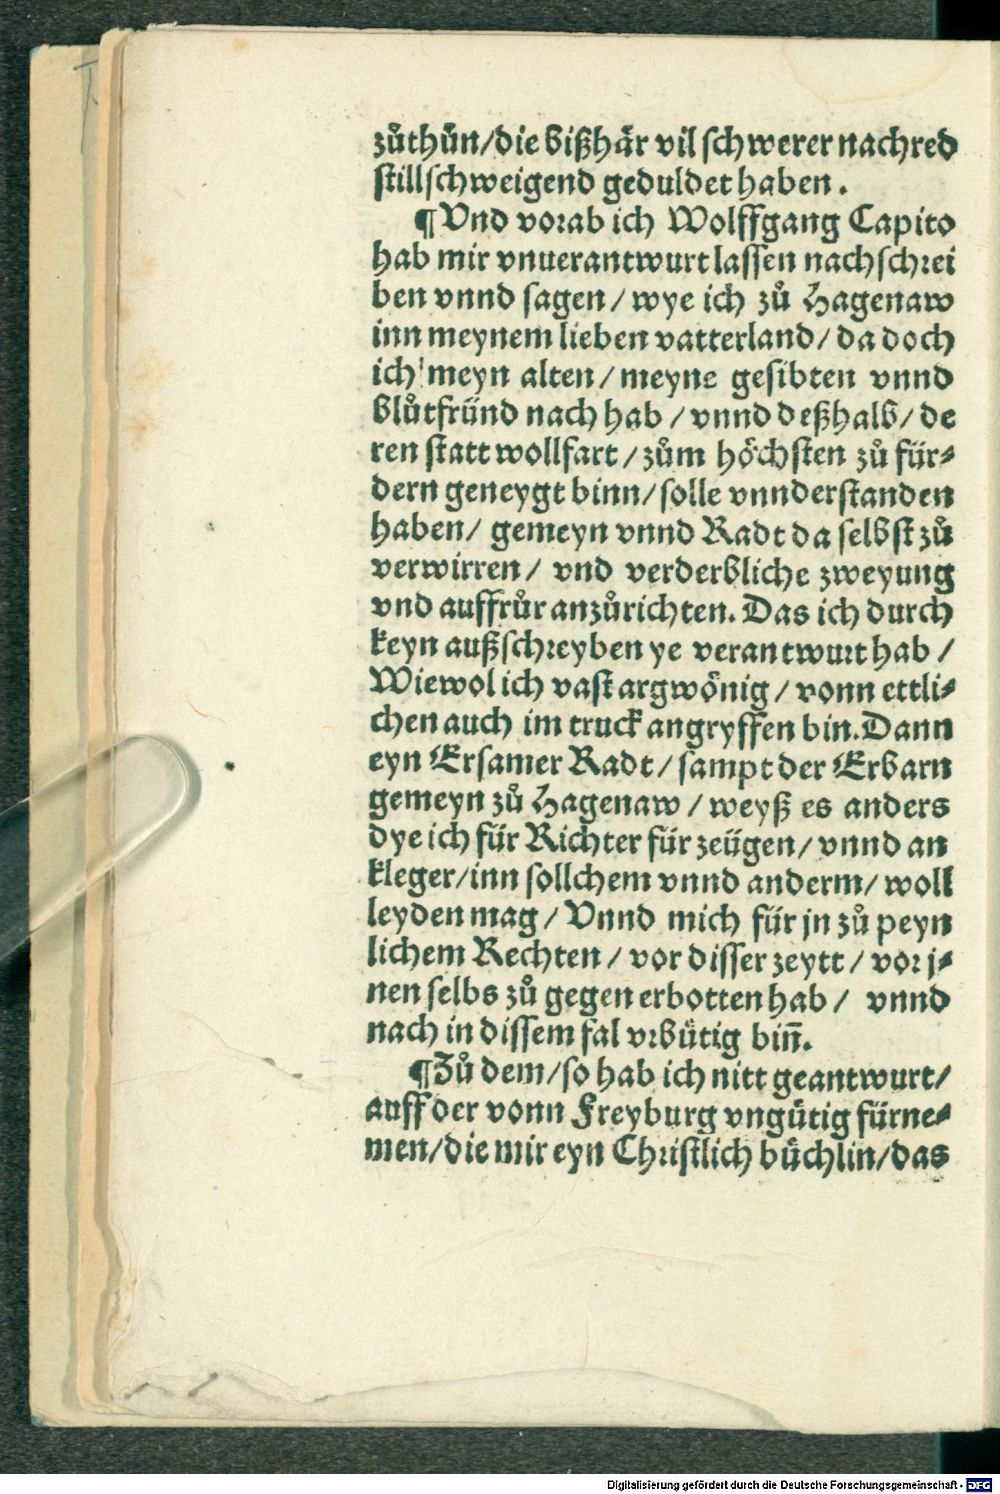 zůthůn/die bißhär vil schwerer nachred
stillschweigend geduldet haben.
¶ Vnd vorab ich Wolffgang Capito
hab mir vnuerantwurt lassen nachschrei
ben vnnd sagen/ wye ich zů Hagenaw
inn meynem lieben vatterland/ da doch
ich meyn alten/ meyne gesibten vnnd
blůtfründ nach hab/ vnnd deßhalb/ de
ren statt wollfart/ zům höchsten zů für⸗
dern geneygt binn/ solle vnnderstanden
haben/ gemeyn vnnd Radt da selbst zů
verwirren/ vnd verderbliche zweyung
vnd auffrůr anzůrichten. Das ich durch
keyn außschreyben ye verantwurt hab/
Wiewol ich vast argwönig/ vonn ettli⸗
chen auch im truck angryffen bin. Dann
eyn Ersamer Radt/ sampt der Erbarn
gemeyn zů Hagenaw/ weyß es anders
dye ich für Richter für zeügen/ vnnd an
kleger/inn sollchem vnnd anderm/ woll
leyden mag/ Vnnd mich für jn zů peyn
lichem Rechten/ vor disser zeytt/ vor j⸗
nen selbs zů gegen erbotten hab/ vnnd
nach in dissem fal vrbütig bin̄.
¶ Zů dem/so hab ich nitt geantwurt/
auff der vonn Freyburg vngütig fürne⸗
men/die mir eyn Christlich büchlin/das
Digitalisierung gefördert durch die Deutsche Forschungsgemeinschaft - DFG